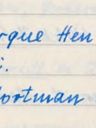 rque Hen
i.
ortman